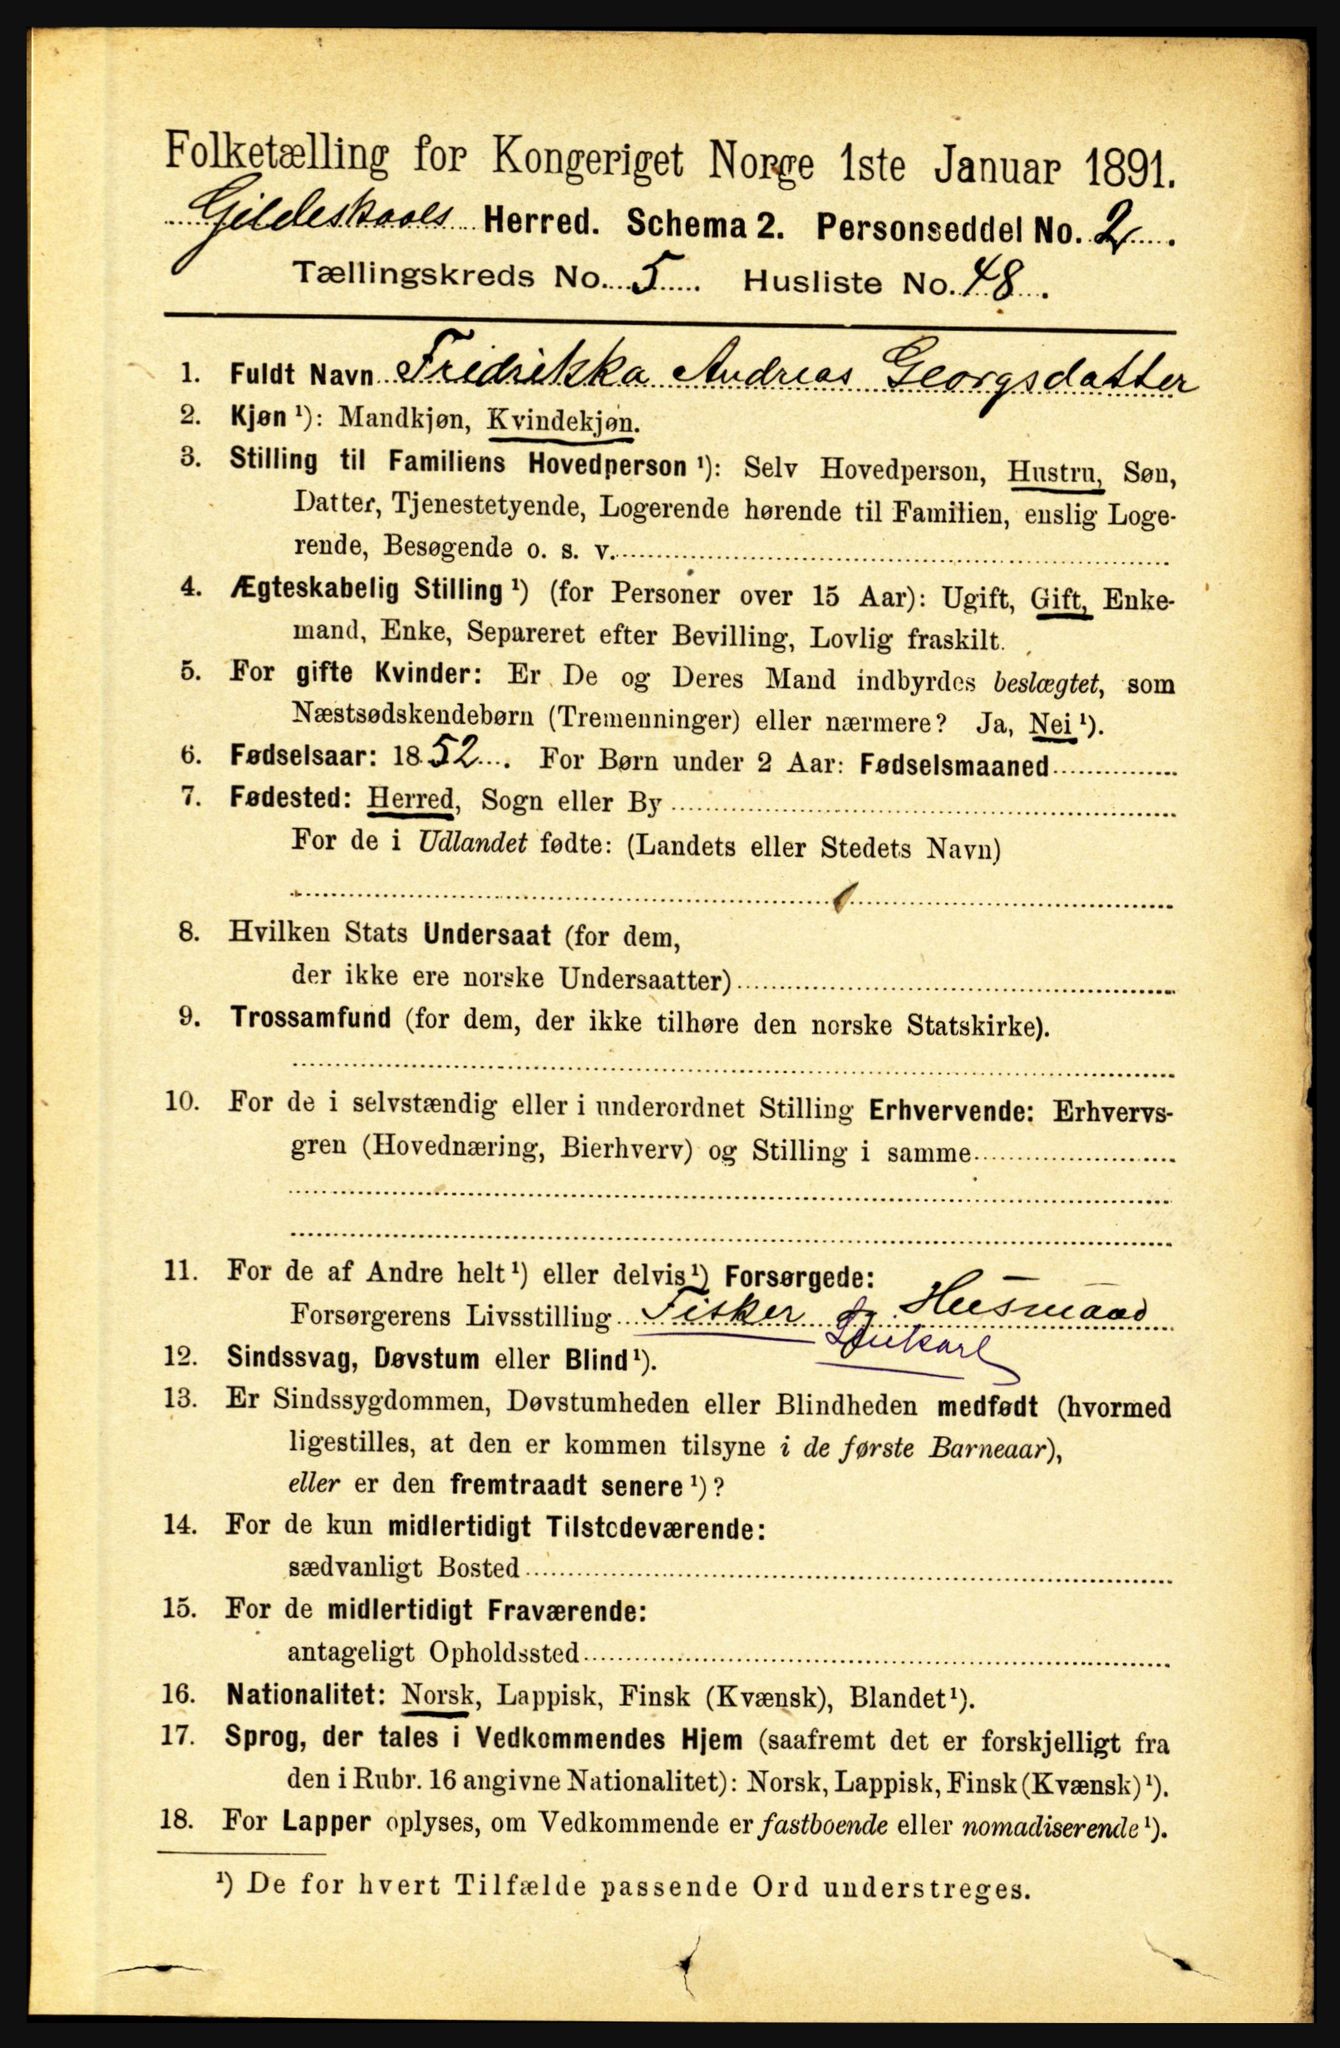 Folketælling for Kongeriget Norge 1ste Januar 1891.
Gildeskaals Herred. Schema 2. Personseddel No. 2.
Tællingskreds No. 5. Husliste No. 48.
1. Fuldt Navn Fredrikka Andreas Georgsdatter
2. Kjøn ¹): Mandkjøn, Kvindekjøn.
3. Stilling til Familiens Hovedperson ¹): Selv Hovedperson, Hustru, Søn,
Datter, Tjenestetyende, Logerende hørende til Familien, enslig Loge-
rende, Besøgende o. s. v.
4. Ægteskabelig Stilling ¹) (for Personer over 15 Aar): Ugift, Gift, Enke-
mand, Enke, Separeret efter Bevilling, Lovlig fraskilt.
5. For gifte Kvinder: Er De og Deres Mand indbyrdes beslægtet, som
Næstsødskendebørn (Tremenninger) eller nærmere? Ja, Nei ¹).
6. Fødselsaar: 1852. For Børn under 2 Aar: Fødselsmaaned
7. Fødested: Herred, Sogn eller By
For de i Udlandet fødte: (Landets eller Stedets Navn)
8. Hvilken Stats Undersaat (for dem,
der ikke ere norske Undersaatter)
9. Trossamfund (for dem, der ikke tilhøre den norske Statskirke).
10. For de i selvstændig eller i underordnet Stilling Erhvervende: Erhvervs-
gren (Hovednæring, Bierhverv) og Stilling i samme
11. For de af Andre helt ¹) eller delvis ¹) Forsørgede:
Forsørgerens Livsstilling Fisker og Husmand
12. Sindssvag, Døvstum eller Blind ¹).
13. Er Sindssygdommen, Døvstumheden eller Blindheden medfødt (hvormed
ligestilles, at den er kommen tilsyne i de første Barneaar),
eller er den fremtraadt senere ¹)?
14. For de kun midlertidigt Tilstedeværende:
sædvanligt Bosted
15. For de midlertidigt Fraværende:
antageligt Opholdssted
16. Nationalitet: Norsk, Lappisk, Finsk (Kvænsk), Blandet ¹).
17. Sprog, der tales i Vedkommendes Hjem (saafremt det er forskjelligt fra
den i Rubr. 16 angivne Nationalitet): Norsk, Lappisk, Finsk (Kvænsk) ¹).
18. For Lapper oplyses, om Vedkommende er fastboende eller nomadiserende ¹).
¹) De for hvert Tilfælde passende Ord understreges.